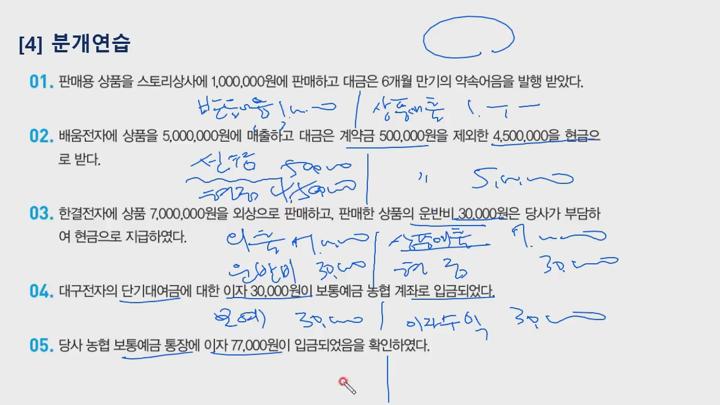 [4] 분개연습
01. 판매용 상품을 스토리상사에 1,000,000원에 판매하고 대금은 6개월 만기의 약속어음을 발행 받았다.
상품매출
02. 배움전자에 상품을 5,000,000원에 매출하고 대금은 계약금 500,000원을 제외한 4,500,000을 현금으
로 받다.
03. 한결전자에 상품 7,000,000원을 외상으로 판매하고, 판매한 상품의 운반비 30,000원은 당사가 부담하
여 현금으로 지급하였다.
상품매출
운반비 30,000 현금 30,000
04. 대구전자의 단기대여금에 대한 이자 30,000원이 보통예금 농협 계좌로 입금되었다.
보예 30,000 이자수익 30,000
05. 당사 농협 보통예금 통장에 이자 77,000원이 입금되었음을 확인하였다.